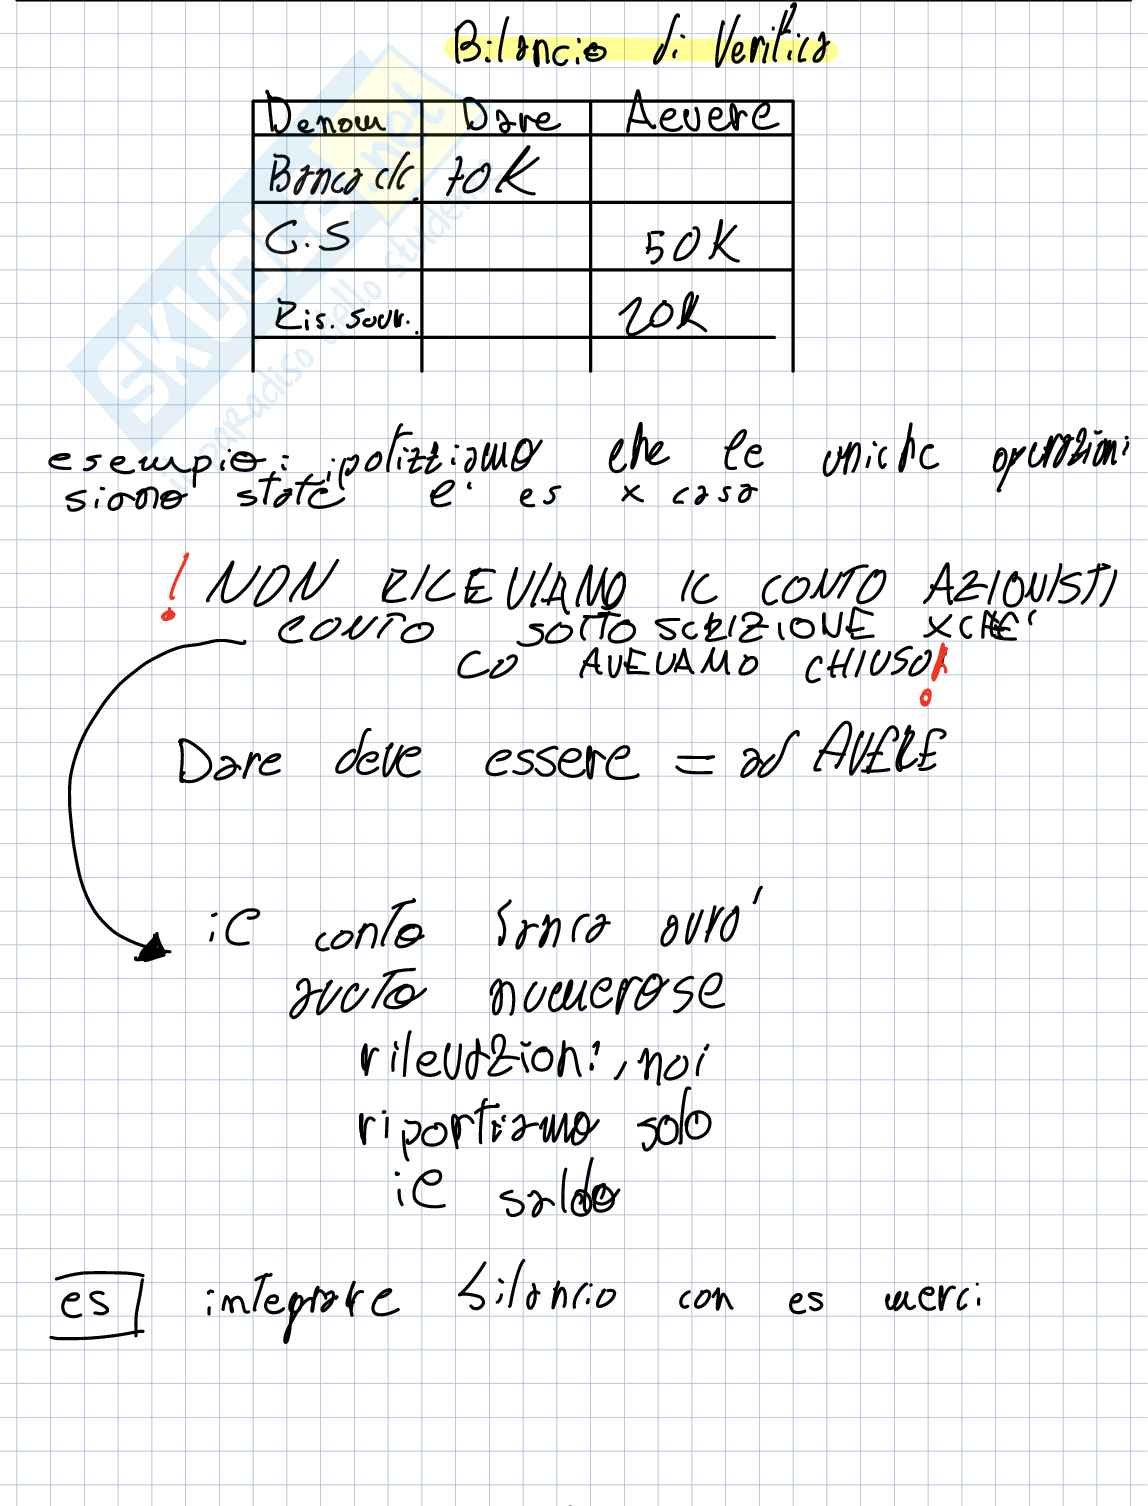 Bilancio di Verifica
Denom Dare Aevere
Banca c/c 70K
C.S 50K
Ris. sovr. 20K
esempio: ipotizziamo che le uniche operazioni
siano state l' es x casa
! NON RILEVIAMO IL CONTO AZIONISTI
CONTO SOTTOSCRIZIONE XCHE'
LO AVEVAMO CHIUSO!
Dare deve essere = ad AVERE
il conto banca avrà
avuto numerose
rilevazioni, noi
riportiamo solo
il saldo
es integrare bilancio con es merci
SKUOLA.net
paradiso dello studente